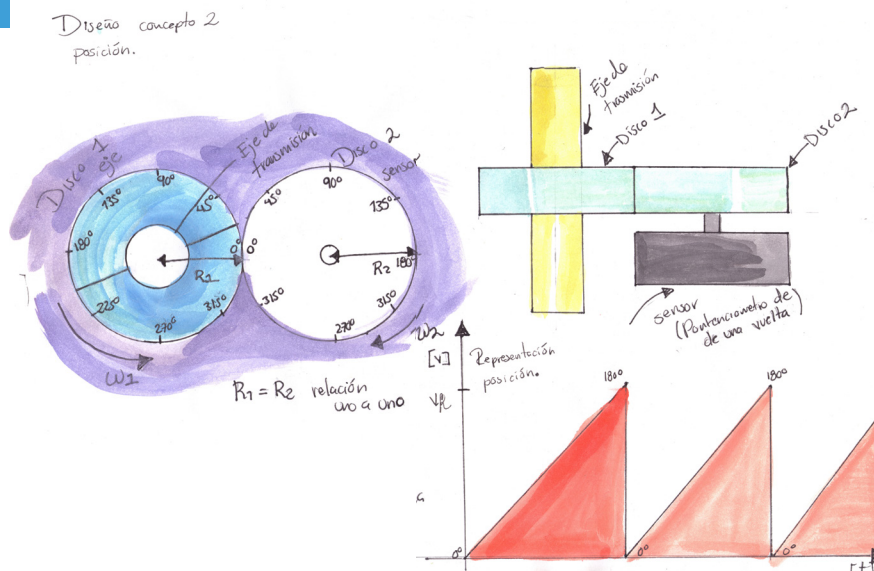 Diseño concepto 2
posición.
Disco 1
eje
Eje de
transmisión
Disco 2
sensor
90°
135°
45°
180°
0°
225°
315°
270°
R1
W1
90°
45°
135°
0°
180°
315°
315°
270°
R2
W2
R1 = R2 relación
uno a uno
Eje de
trasmisión
Disco 1
Disco 2
sensor
(Pontenciometro de
de una vuelta)
[v]
Representación
posición.
180°
180°
0°
0°
0°